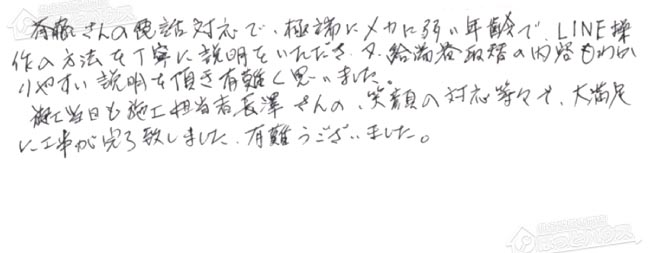 斉藤さんの電話対応で、極端にメカに弱い年齢で、LINE操
作の方法を丁寧に説明をいただき、又、給湯器取替の内容もわか
りやすい説明を頂き有難く思いました。
施工当日も施工担当者長澤さんの、笑顔の対応等々で、大満足
に工事が完了致しました、有難うございました。